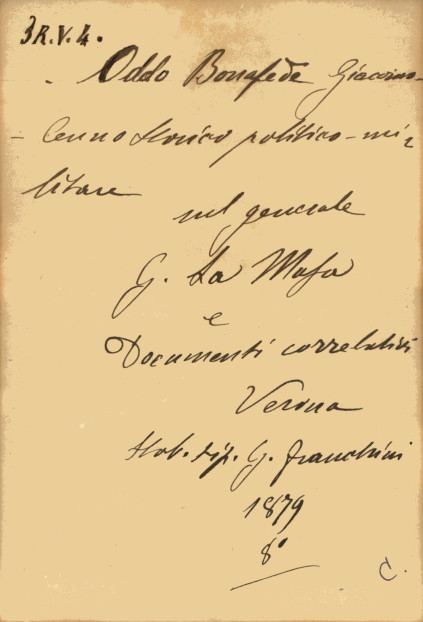 3 R. V. 4.
Oddo Bonafede Giacomo-
- Cenno storico politico-mi-
litare
sul generale
G. La Masa
e
Documenti correlativi
Verona
Stab. tip. G. Franchini
1879
8°
C.